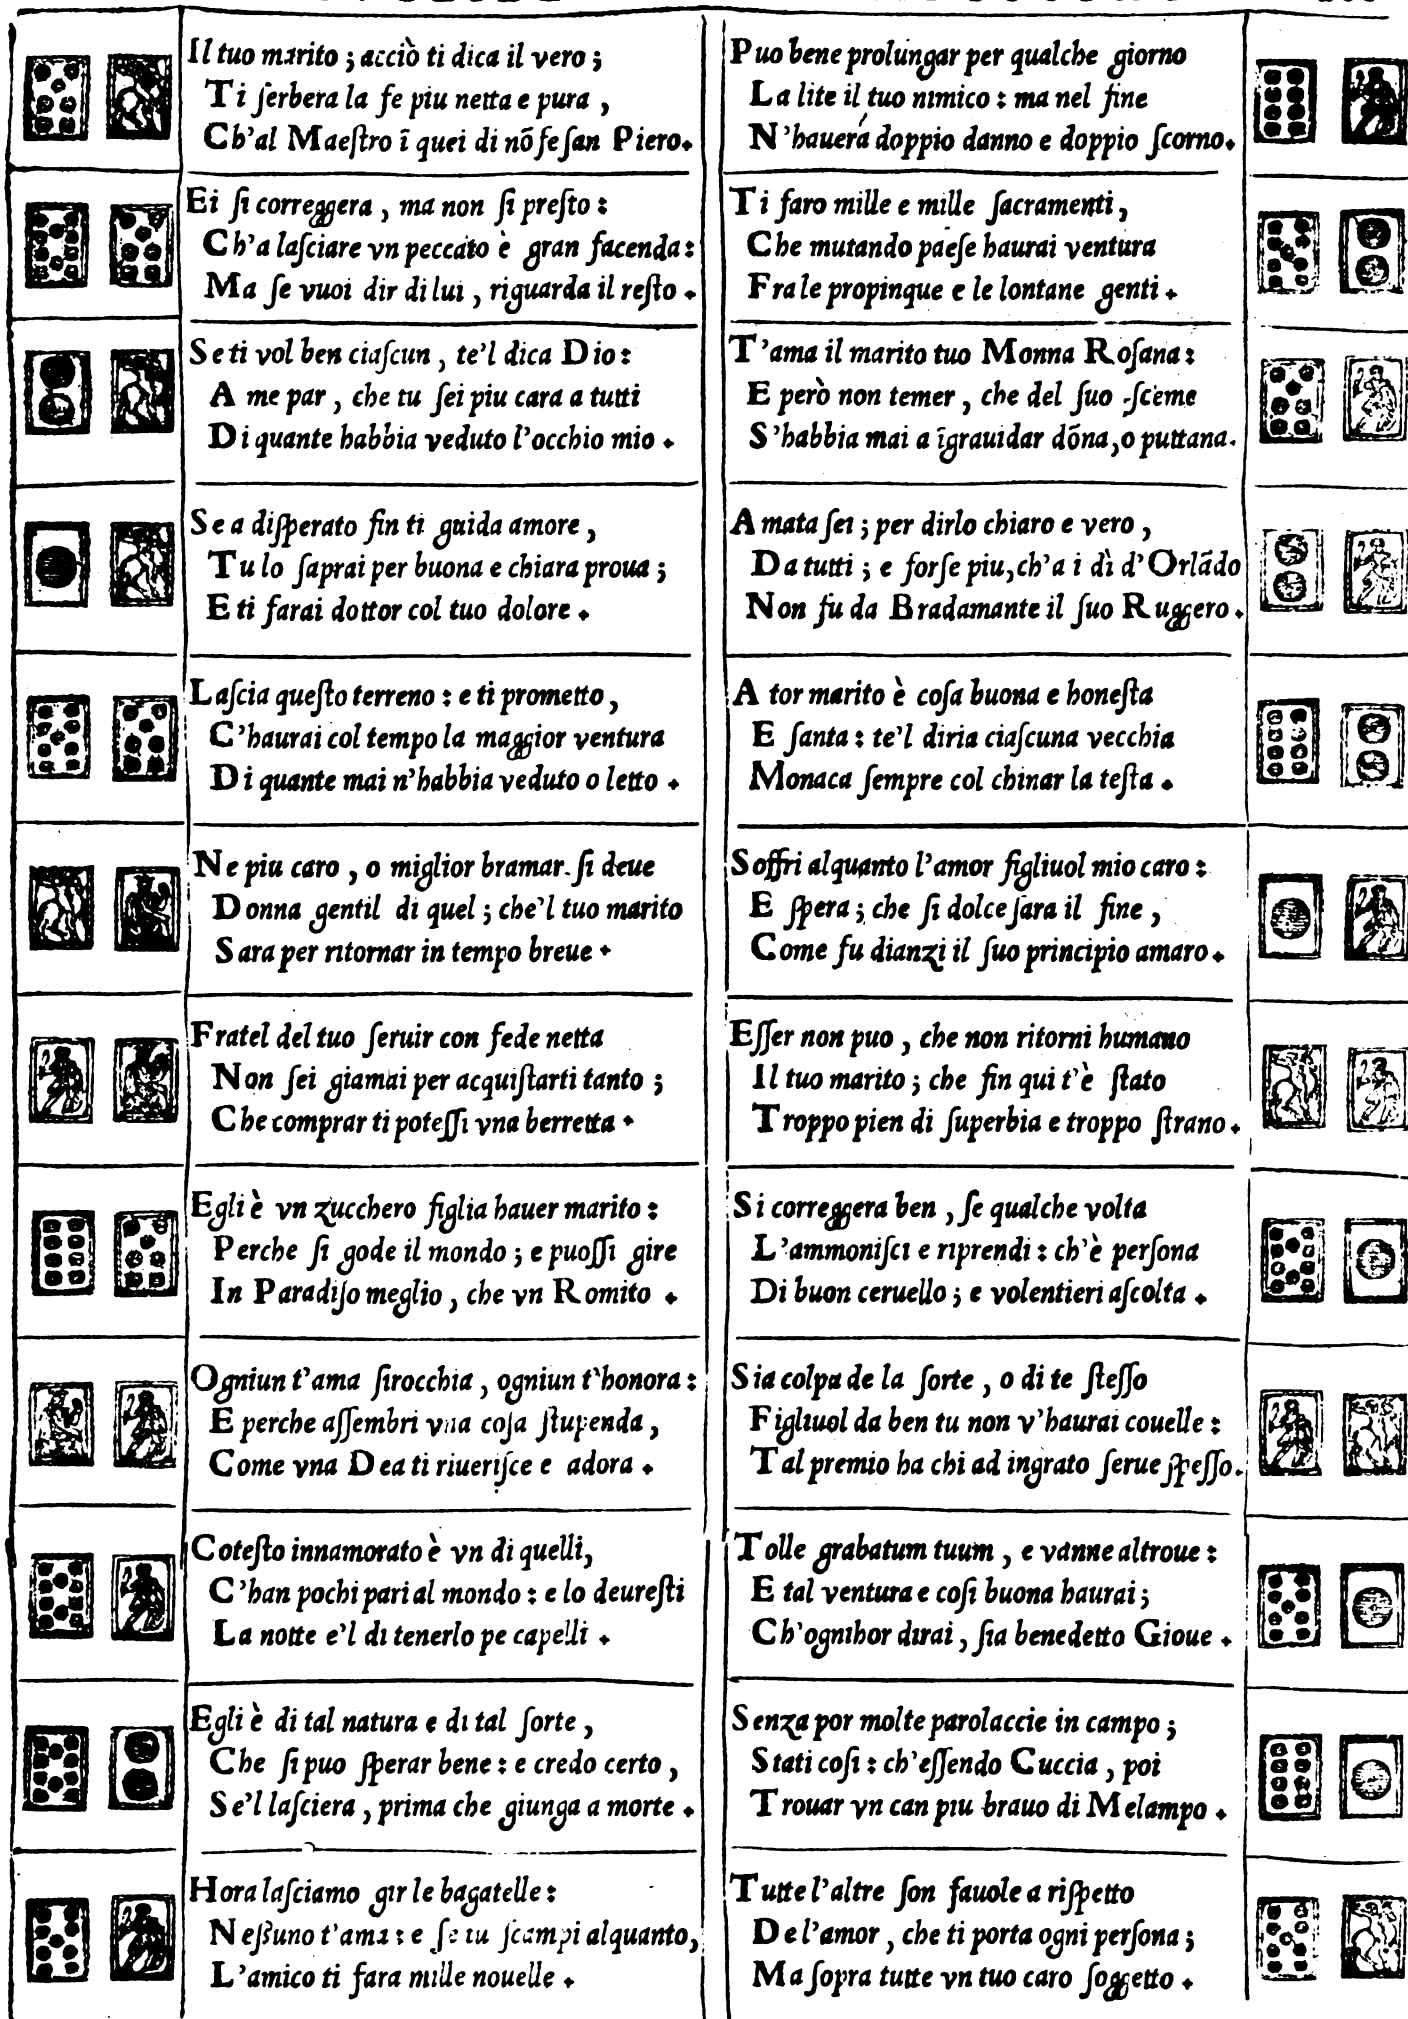 Il tuo marito ; acciò ti dica il vero ;
Ti ſerbera la fe piu netta e pura ,
Ch'al Maeſtro ĩ quei di nõ fe ſan Piero.
Ei ſi correggera , ma non ſi preſto :
Ch'a laſciare vn peccato è gran facenda :
Ma ſe vuoi dir di lui , riguarda il reſto .
Se ti vol ben ciaſcun , te'l dica Dio :
A me par , che tu ſei piu cara a tutti
Di quante habbia veduto l'occhio mio .
Se a diſperato fin ti guida amore ,
Tu lo ſaprai per buona e chiara proua ;
E ti farai dottor col tuo dolore .
Laſcia queſto terreno : e ti prometto ,
C'haurai col tempo la maggior ventura
Di quante mai n'habbia veduto o letto .
Ne piu caro , o miglior bramar ſi deue
Donna gentil di quel ; che'l tuo marito
Sara per ritornar in tempo breue .
Fratel del tuo ſeruir con fede netta
Non ſei giamai per acquiſtarti tanto ;
Che comprar ti poteſſi vna berretta .
Egli è vn zucchero figlia hauer marito :
Perche ſi gode il mondo ; e puoſſi gire
In Paradiſo meglio , che vn Romito .
Ogniun t'ama ſirocchia , ogniun t'honora :
E perche aſſembri vna coſa ſtupenda ,
Come vna Dea ti riueriſce e adora .
Coteſto innamorato è vn di quelli,
C'han pochi pari al mondo : e lo deureſti
La notte e'l di tenerlo pe capelli .
Egli è di tal natura e di tal ſorte ,
Che ſi puo ſperar bene : e credo certo ,
Se'l laſciera , prima che giunga a morte .
Hora laſciamo gir le bagatelle :
Neſſuno t'ama : e ſe tu ſcampi alquanto,
L'amico ti fara mille nouelle .
Puo bene prolungar per qualche giorno
La lite il tuo nimico : ma nel fine
N'hauerá doppio danno e doppio ſcorno.
Ti faro mille e mille ſacramenti ,
Che mutando paeſe haurai ventura
Fra le propinque e le lontane genti .
T'ama il marito tuo Monna Roſana :
E però non temer , che del ſuo ſceme
S'habbia mai a ĩgrauidar dõna, o puttana.
Amata ſei ; per dirlo chiaro e vero ,
Da tutti ; e forſe piu, ch'a i dì d'Orlãdo
Non fu da Bradamante il ſuo Ruggero .
A tor marito è coſa buona e honeſta
E ſanta : te'l diria ciaſcuna vecchia
Monaca ſempre col chinar la teſta .
Soffri alquanto l'amor figliuol mio caro :
E ſpera ; che ſi dolce ſara il fine ,
Come fu dianzi il ſuo principio amaro .
Eſſer non puo , che non ritorni humano
Il tuo marito ; che fin qui t'è ſtato
Troppo pien di ſuperbia e troppo ſtrano .
Si correggera ben , ſe qualche volta
L'ammoniſci e riprendi : ch'è perſona
Di buon ceruello ; e volentieri aſcolta .
Sia colpa de la ſorte , o di te ſteſſo
Figliuol da ben tu non v'haurai couelle :
Tal premio ha chi ad ingrato ſerue ſpeſſo.
Tolle grabatum tuum , e vanne altroue :
E tal ventura e coſi buona haurai ;
Ch'ognihor dirai , ſia benedetto Gioue .
Senza por molte parolaccie in campo ;
Stati coſi : ch'eſſendo Cuccia , poi
Trouar vn can piu brauo di Melampo .
Tutte l'altre ſon fauole a riſpetto
De l'amor , che ti porta ogni perſona ;
Ma ſopra tutte vn tuo caro ſoggetto .